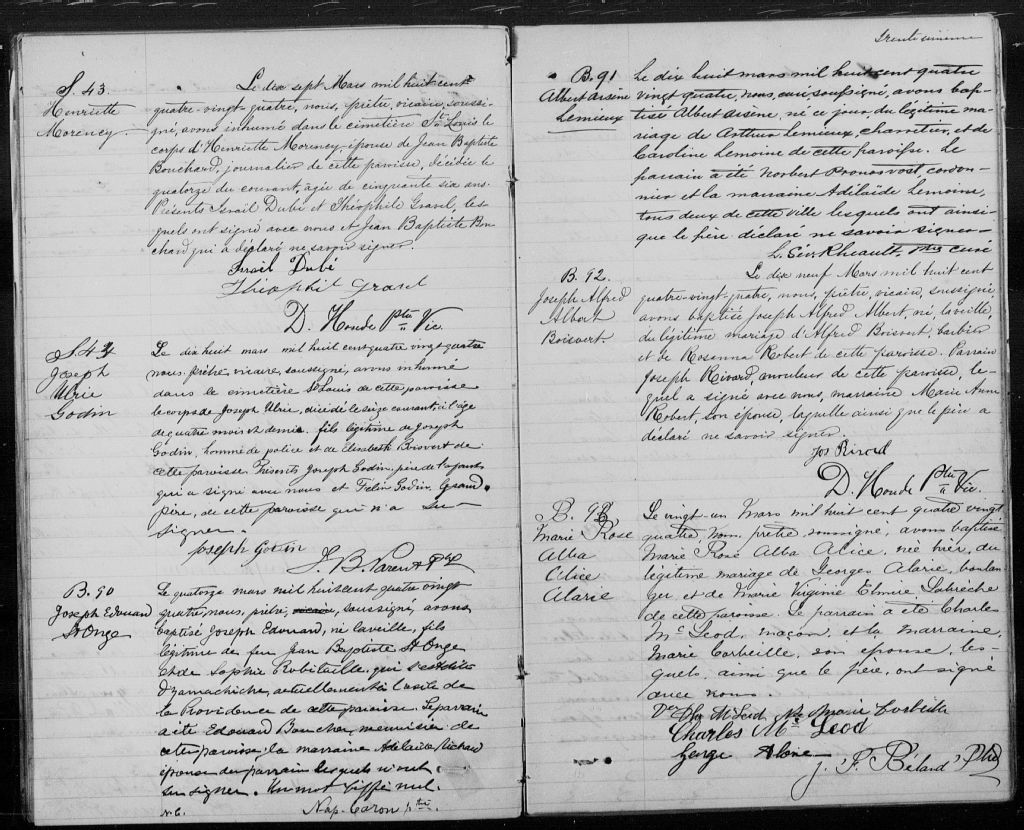 S. 43.
Henriette
Morency
Le dix sept Mars mil huit cent
quatre-vingt-quatre, nous, prêtre, vicaire, soussi-
gné, avons inhumé dans le cimetière St. Louis le
corps d'Henriette Morency, épouse de Jean Baptiste
Bouchard, journalier de cette paroisse, décédée le
quatorze du courant, âgée de cinquante six ans.
Présents Israël Dubé et Théophile Gravel, les-
quels ont signé avec nous et Jean Baptiste Bou-
chard qui a déclaré ne savoir signer.
Israël Dubé
Théophile Gravel
D. Houde Ptre Vic.
S. 44
Joseph
Ulric
Godin
Le dix huit mars mil huit cent quatre vingt quatre
nous, prêtre, vicaire, soussigné, avons inhumé
dans le cimetière St Louis de cette paroisse
le corps de Joseph Ulric, décédé le seize courant, à l'âge
de quatre mois et demi. fils légitime de Joseph
Godin, homme de police et de Elisabeth Boisvert de
cette paroisse. Présents Joseph Godin, père de l'enfant
qui a signé avec nous et Felix Godin, Grand-
père, de cette paroisse qui n'a su
signer.
Joseph Godin
J. B. Parent Ptre
B. 90
Joseph Edouard
St Onge
Le quatorze mars mil huit cent quatre vingt
quatre, nous, prêtre, vicaire, soussigné, avons
baptisé Joseph Edouard, né la veille, fils
légitime de feu Jean Baptiste St Onge
et de Sophie Robitaille, qui
D'yamachiche, actuellement à l'asile de
la Providence de cette paroisse. Le parrain
a été Edouard Boucher, menuisier de
cette paroisse, la marraine Adelaide Richard
épouse du parrain lesquels n'ont
su signer. Un mot biffé nul.
N. C.
Nap. Caron ptre.
Trente sixième
B. 91
Albert Arsène
Lemieux
Le dix huit mars mil huit cent quatre
vingt quatre, nous, curé, soussigné, avons bap-
tisé Albert Arsène, né ce jour, du légitime ma-
riage de Arthur Lemieux, charretier, et de
Caroline Lemoine de cette paroisse. Le
parrain a été Norbert Pronovost, cordon-
nier et la marraine Adélaïde Lemoine,
tous deux de cette ville lesquels ont ainsi
que le père déclaré ne savoir signer
L. Sév. Rheault, Ptre curé
B. 92.
Joseph Alfred
Albert
Boisvert
Le dix neuf Mars mil huit cent
quatre-vingt-quatre, nous, prêtre, vicaire, soussigné
avons baptisé Joseph Alfred Albert, né, la veille,
du légitime mariage d'Alfred Boisvert, barbier
et de Rosanna Robert de cette paroisse. Parrain
Joseph Rivard, mouleur de cette paroisse, le-
quel a signé avec nous, marraine Marie Anne
Robert, son épouse, laquelle ainsi que le père a
déclaré ne savoir signer.
Jos Rivard
D. Houde Ptre Vic.
B. 93
Marie Rose
Alba
Alice
Alarie
Le vingt-un Mars mil huit cent quatre vingt
quatre, nous, prêtre soussigné, avons baptisé
Marie Rose Alba Alice, née hier, du
légitime mariage de Georges Alarie, boulan-
ger et de Marie Virginie Elmire Labrèche
de cette paroisse. Le parrain a été Charles
Mc Leod, maçon, et la marraine,
Marie Corbeille, son épouse, les-
quels, ainsi que le père, ont signé
avec nous.
McLeod Marie Corbeille
Charles Mc Leod
George Alarie
J. F. Béland Ptre